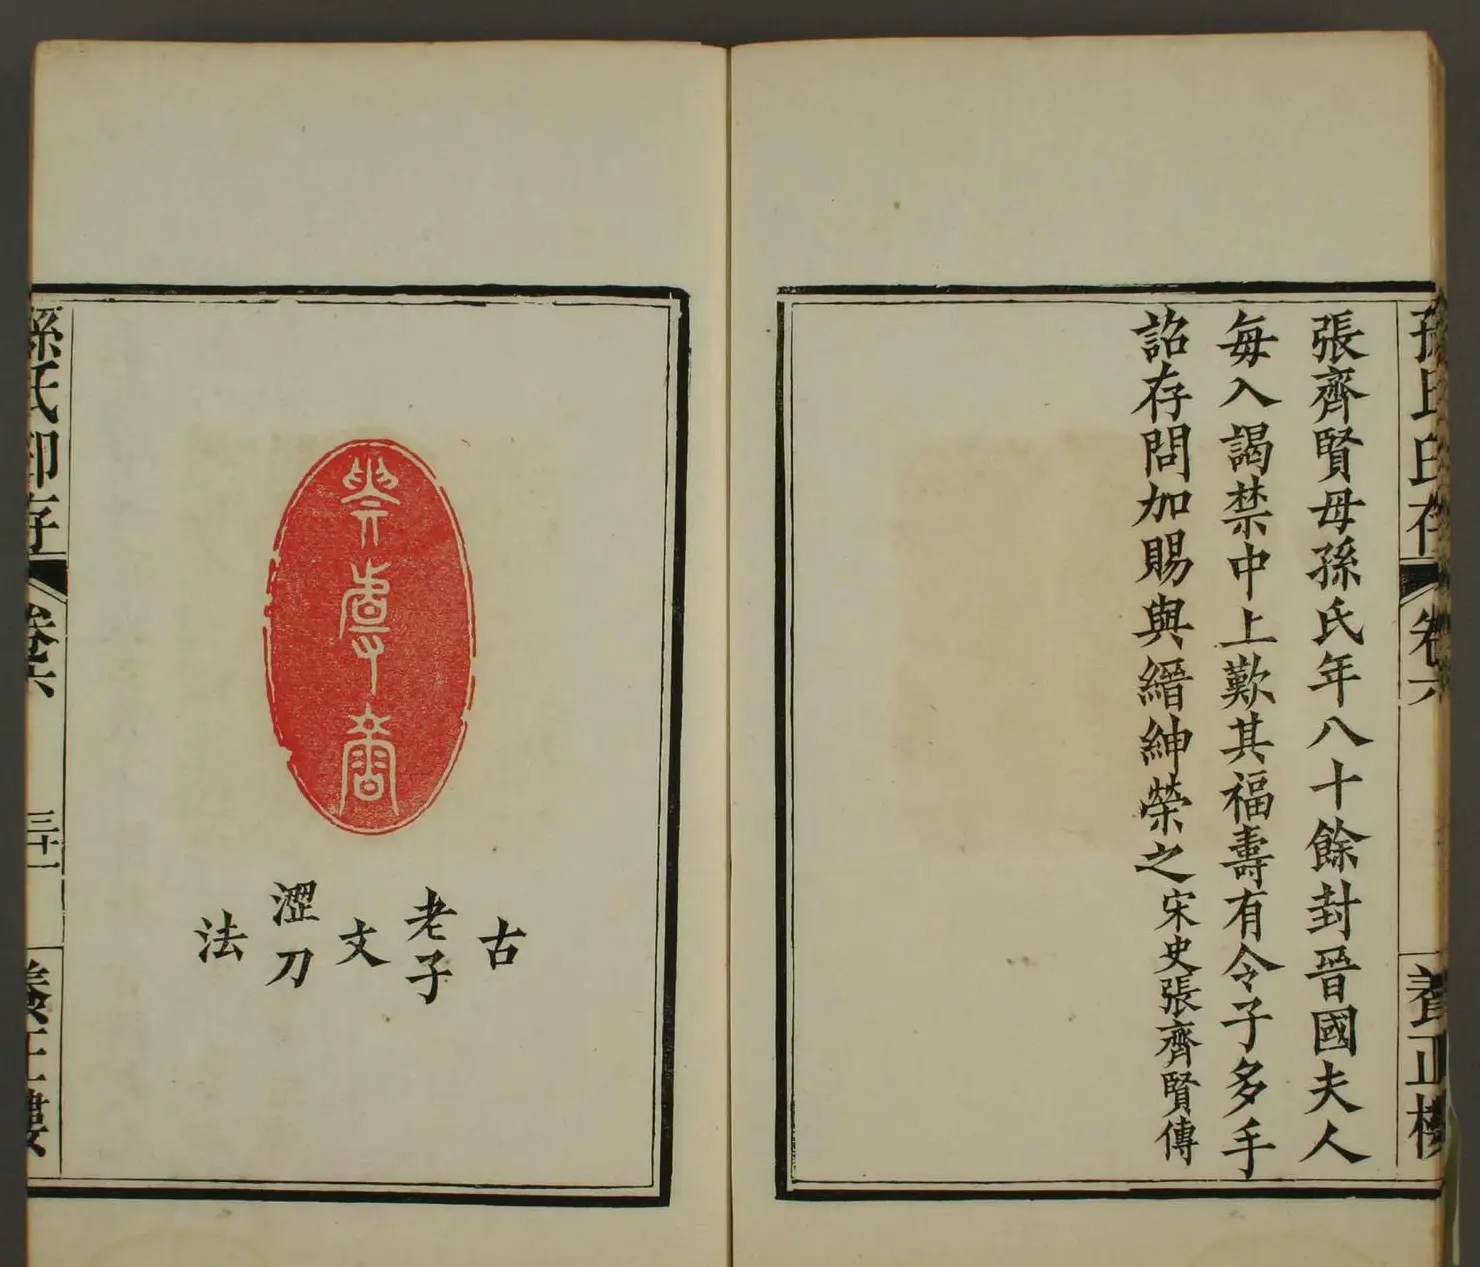 孫氏印存 卷六 養正樓
張齊賢母孫氏年八十餘封晉國夫人
每入謁禁中上歎其福壽有令子多手
詔存問加賜與縉紳榮之宋史張齊賢傳
古
老子
文
澀刀
法
孫氏印存 卷六 三十一 養正樓